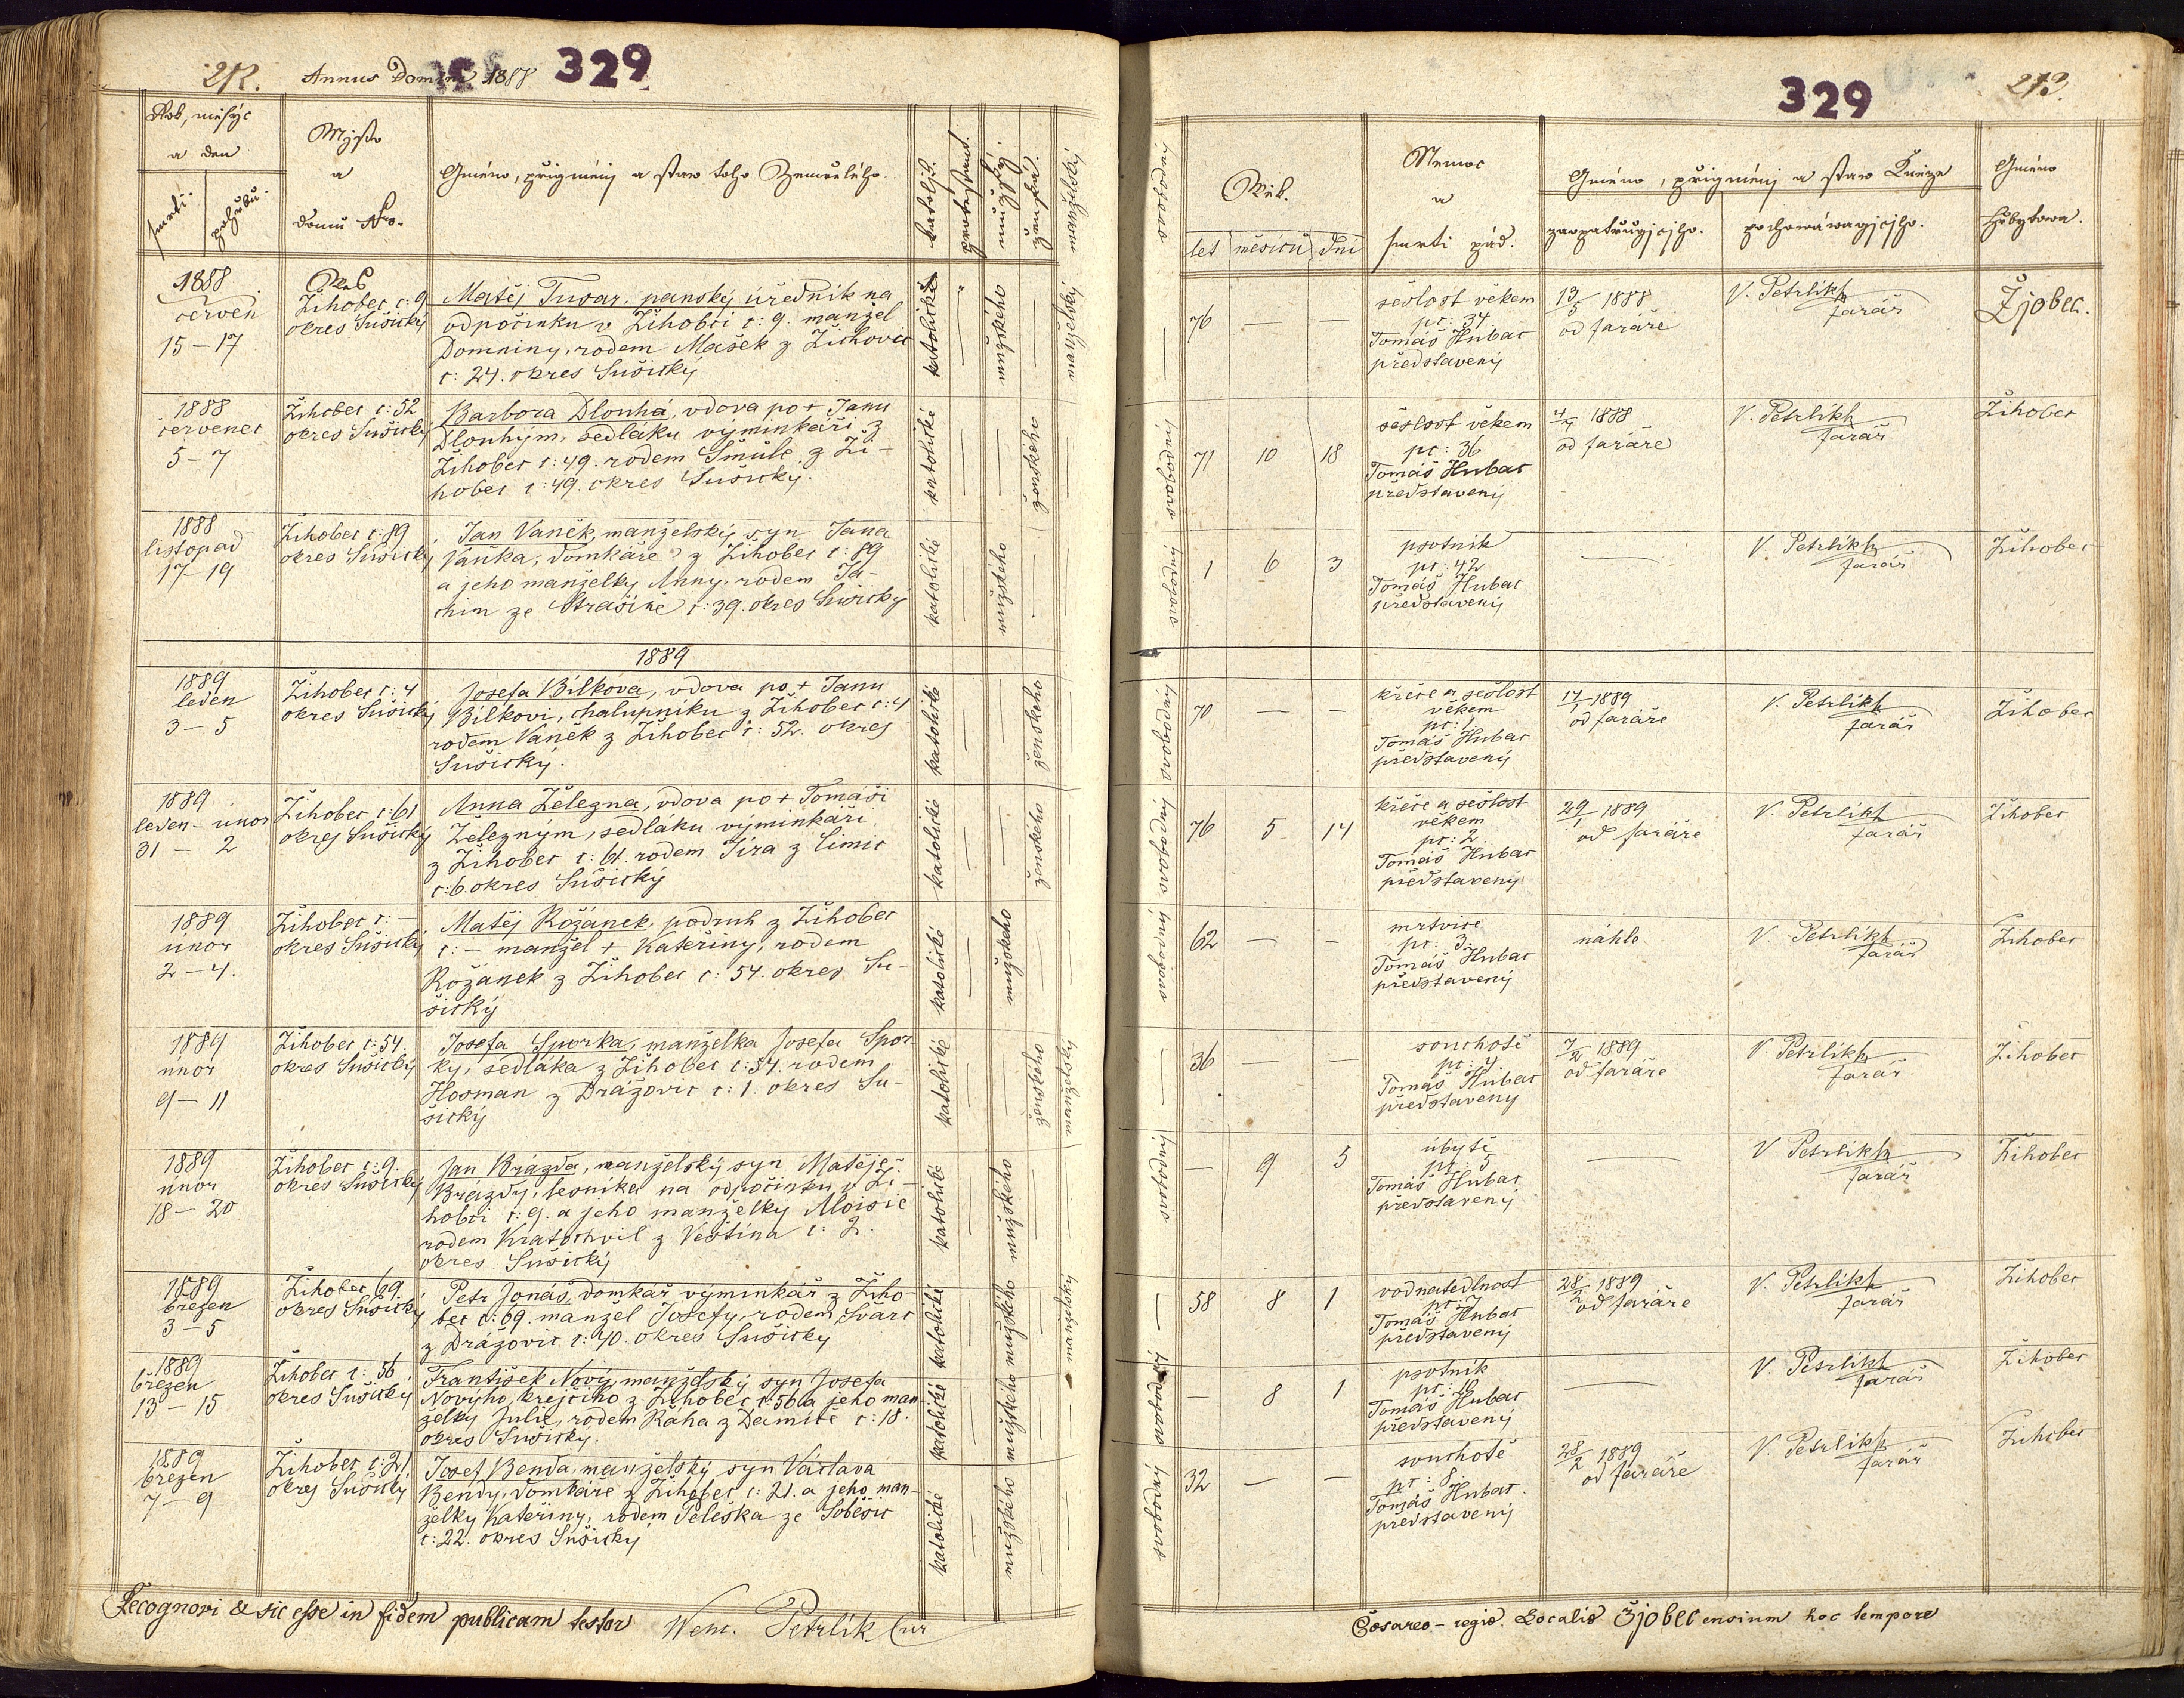 212.
Annus Domini 1888
329
Rok, měsýc
a den
smrti
pohřbu
Mjsto
a
domu Nro.
Gméno, přigménj a staw toho Zemřelého.
katoljk.
protestant.
mužský.
ženská.
manželský
1888
červen
15 – 17
Žihobec č: 9
okres Sušický
Matěj Tusar, panský úředník na
odpočinku v Žihobci č: 9. manžel
Domniny, rodem Mašek z Žichovic
č: 24. okres Sušický
katolické
mužského
manželský
1888
červenec
5 – 7
Žihobec č: 52
okres Sušický
Barbora Dlouhá, vdova po + Janu
Dlouhým, sedláku výminkáři z
Žihobec č: 49. rodem Šmůle z Ži-
hobec č: 49. okres Sušický.
katolické
ženského
1888
listopad
17 – 19
Žihobec č: 89
okres Sušický
Jan Vaněk, manželský syn Jana
Vaňka, domkáře z Žihobec č: 89
a jeho manželky Anny, rodem Já-
chim ze Strašíně č: 39. okres Sušický
katolické
mužského
1889
1889
leden
3 – 5
Žihobec č: 4
okres Sušický
Josefa Bílkova, vdova po + Janu
Bílkovi, chalupníku z Žihobec č: 4
rodem Vaněk z Žihobec č: 52. okres
Sušický.
katolické
ženského
1889
leden – únor
31 – 2
Žihobec č: 61
okres Sušický
Anna Železna, vdova po + Tomáši
Železným, sedláku výminkáři
z Žihobec č: 61. rodem Síra z Čimic
č: 6. okres Sušický
katolické
ženského
1889
únor
2 – 4.
Žihobec č: –
okres Sušický
Matěj Rožánek, podruh z Žihobec
č: – manžel + Kateřiny, rodem
Rožanek z Žihobec č: 54. okres Su-
šický
katolické
mužského
1889
únor
9 – 11
Žihobec č: 54.
okres Sušický
Josefa Sporka, manželka Josefa Spor-
ky, sedláka z Žihobec č: 54. rodem
Hosman z Drážovic č: 1. okres Su-
šický
katolické
ženského
manželský
1889
únor
18 – 20
Žihobec č: 9.
okres Sušický
Jan Brázda, manželský syn Matěje
Brázdy, lesníka na odpočinku v Ži-
hobci č: 9. a jeho manželky Aloisie
rodem Kratochvíl z Věština č: 2.
okres Sušický
katolické
mužského
1889
březen
3 – 5
Žihobec 69.
okres Sušický
Petr Jonáš, domkář výminkář z Žiho-
bec č: 69. manžel Josefy, rodem Švarc
z Drážovic č: 40. okres Sušický
katolické
mužského
manželský
1889
březen
13 – 15
Žihobec č: 56
okres Sušický
František Nový, manželský syn Josefa
Novýho, krejčího z Žihobec č: 56 a jeho man-
želky Julie, rodem Ráha z Damíče č: 18.
okres Sušický.
katolické
mužského
1889
březen
7 – 9
Žihobec č: 21
okres Sušický
Josef Benda, manželský syn Václava
Bendy, domkáře z Žihobec č: 21. a jeho man-
želky Kateřiny, rodem Peleška ze Soběšic
č: 22. okres Sušický
katolické
mužského
Recognovi & sic esse in fidem publicam testor Wenc. Petrlík Cur
329
213.
svobodný
Wěk.
let
měsíců
dní
Nemoc
a
smrti pád.
Gméno, přigménj a staw Kněze
zaopatřugjcjho.
pochowáwagjcjho.
Gméno
hřbytowa.
76 — —
sešlost věkem
pč: 34
Tomáš Hubač
představený
13/5 1888
od faráře
V. Petrlík
farář
Žjobec.
svobodný
71 10 18
sešlost věkem
pč: 36
Tomáš Hubač
představený
4/7 1888
od faráře
V. Petrlík
farář
Žihobec
svobodný
1 6 3
psotník
pč: 42
Tomáš Hubač
představený
V. Petrlík
farář
Žihobec
svobodný
70 — —
křeče a sešlost
věkem
pč: 1
Tomáš Hubač
představený
od faráře
V. Petrlík
farář
Žihobec
svobodný
76 5 14
křeče a sešlost
věkem
pč: 2
Tomáš Hubač
představený
29/1 1889
od faráře
V. Petrlík
farář
Žihobec
svobodný
62 — —
mrtvice
pč: 3.
Tomáš Hubač
představený
náhle
V. Petrlík
farář
Žihobec
36 — —
souchotě
pč: 4
Tomáš Hubač
představený
7/2 1889
od faráře
V Petrlík
farář
Žihobec
svobodný
— 9 5
úbytě
pč: 5
Tomáš Hubač
představený
V Petrlík
farář
Žihobec
58 8 1
vodnatedlnost
pč: 7
Tomáš Hubač
představený
28/2 1889
od faráře
V. Petrlík
farář
Žihobec
svobodný
— 8 1
psotník
pč: 10
Tomáš Hubač
představený
V. Petrlík
farář
Žihobec
svobodný
32 — —
souchotě
pč: 8.
Tomáš Hubač.
představený
28/2 1889
od faráře
V. Petrlík
farář
Žihobec
Cösareo – regis. Localis Žjobecensium hoc tempore